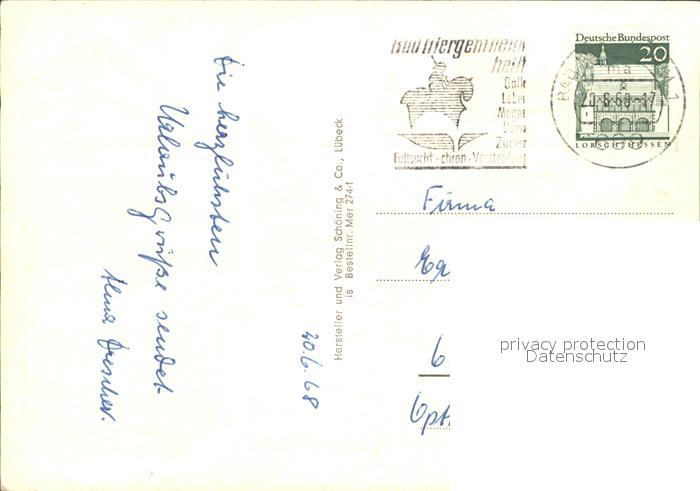 Die herzlichsten
Urlaubsgrüße sendet
Alma Drescher.
20.6.68
Hersteller und Verlag Schöning & Co., Lübeck
is Bestellnr: Mer 274-f
Bad Mergentheim
heilt
Galle
Leber
Magen
Darm
Zucker
Fettsucht - chron - Verstopfung
Deutsche Bundespost
20
LORSCH/HESSEN
Firma
6
privacy protection
Datenschutz